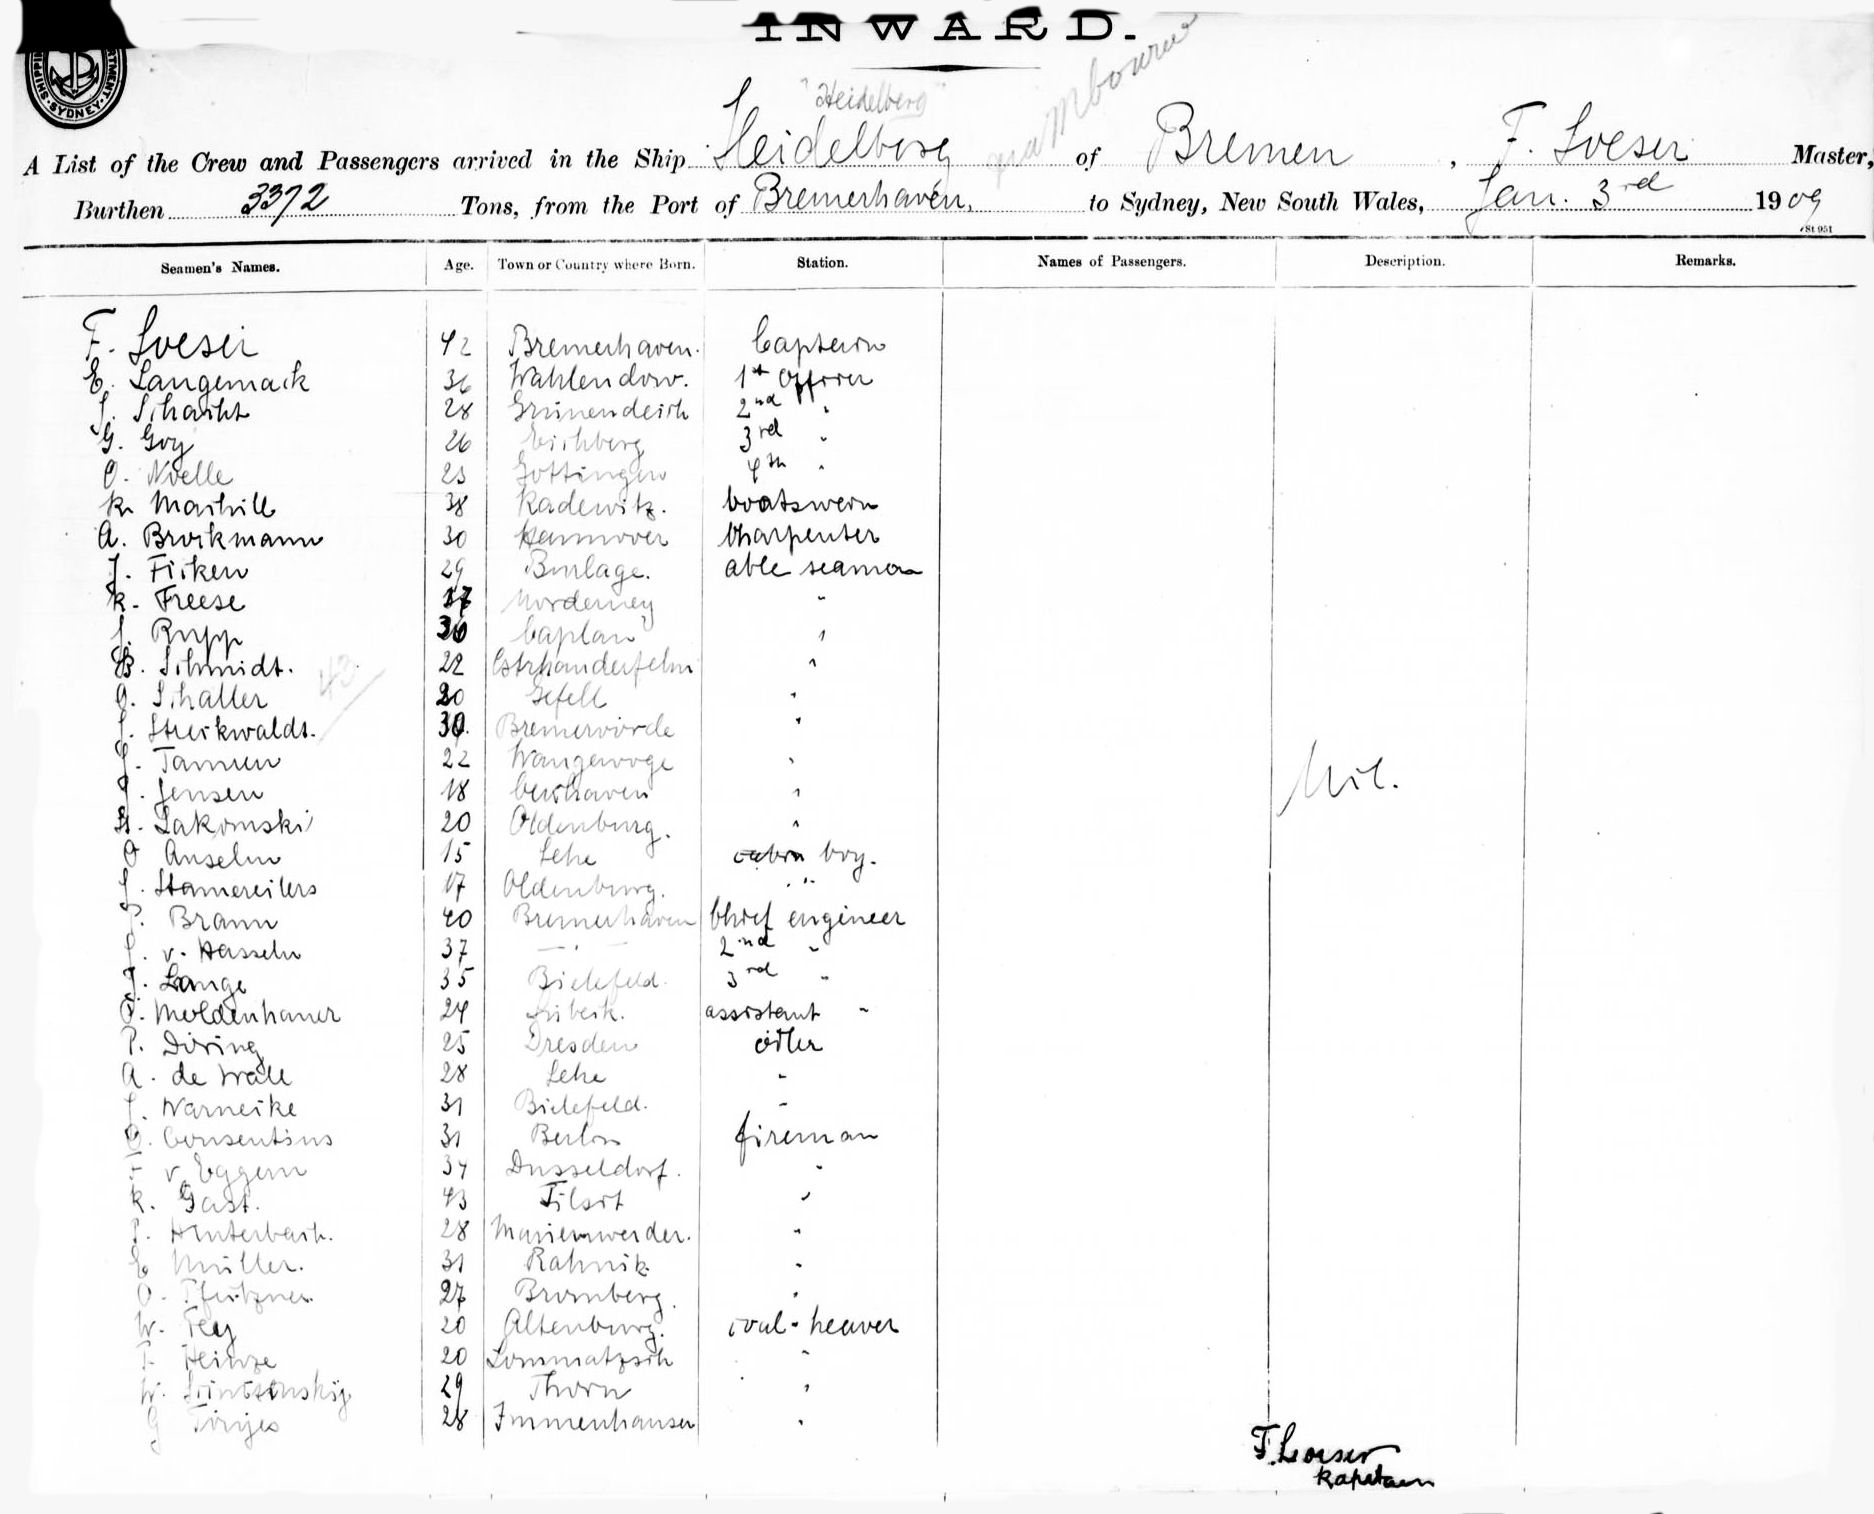 INWARD.
SHIPPING DEPARTMENT. SYDNEY.
"Heidelberg" via Mbourne
A List of the Crew and Passengers arrived in the Ship Heidelberg of Bremen, F. Loeser Master,
Burthen 3372 Tons, from the Port of Bremerhaven, to Sydney, New South Wales, Jan. 3rd 1909
St 951
Seamen's Names. Age. Town or Country where Born. Station. Names of Passengers. Description. Remarks.
F. Loeser 42 Bremerhaven. Captain
E. Langemack 36 Wahlendow. 1st Officer
Schacht 28 Grünendeich 2nd "
G. Goy 26 Eichberg 3rd "
O. Noelle 23 Göttingen 4th "
K. Machill 38 Kadewitz. boatswein
A. Brockmann 30 Hannover Charpenter
J. Ficken 29 Burlage. able seaman
K. Freese 17 Norderney "
Rupp 36 Caplan "
B. Schmidt. 22 Ostrhanderfehn "
43
O. Schaller 20 Gefell "
Streckwaldt. 30. Bremervörde "
Tannen 22 Wangerooge "
Jensen 18 Cuxhaven "
H. Lakomski 20 Oldenburg. "
O Anselm 15 Lehe cabin boy.
Stamereilers 17 Oldenburg. "
Nil.
Braun 40 Bremerhaven Chief engineer
v. Hasseln 37 — " — 2nd "
J. Lange 35 Bielefeld. 3rd "
O. Moldenhauer 24 Lübeck. assistant "
P. Döring 25 Dresden oiler
A. de Wall 28 Lehe "
Warnecke 31 Bielefeld. "
Consentius 31 Berlin fireman
v. Eggern 34 Dusseldorf. "
K. Gast. 43 Tilsit "
P. Hinterbach. 28 Marienwerder. "
E Müller. 31 Rahnik "
O. Pfützner 27 Bromberg. "
W. Fey 20 Altenburg. coal-heaver
Heinze 20 Lommatzsch "
W. 29 Thorn "
G Tönjes 28 Immenhausen "
F. Loeser
Kapitaen